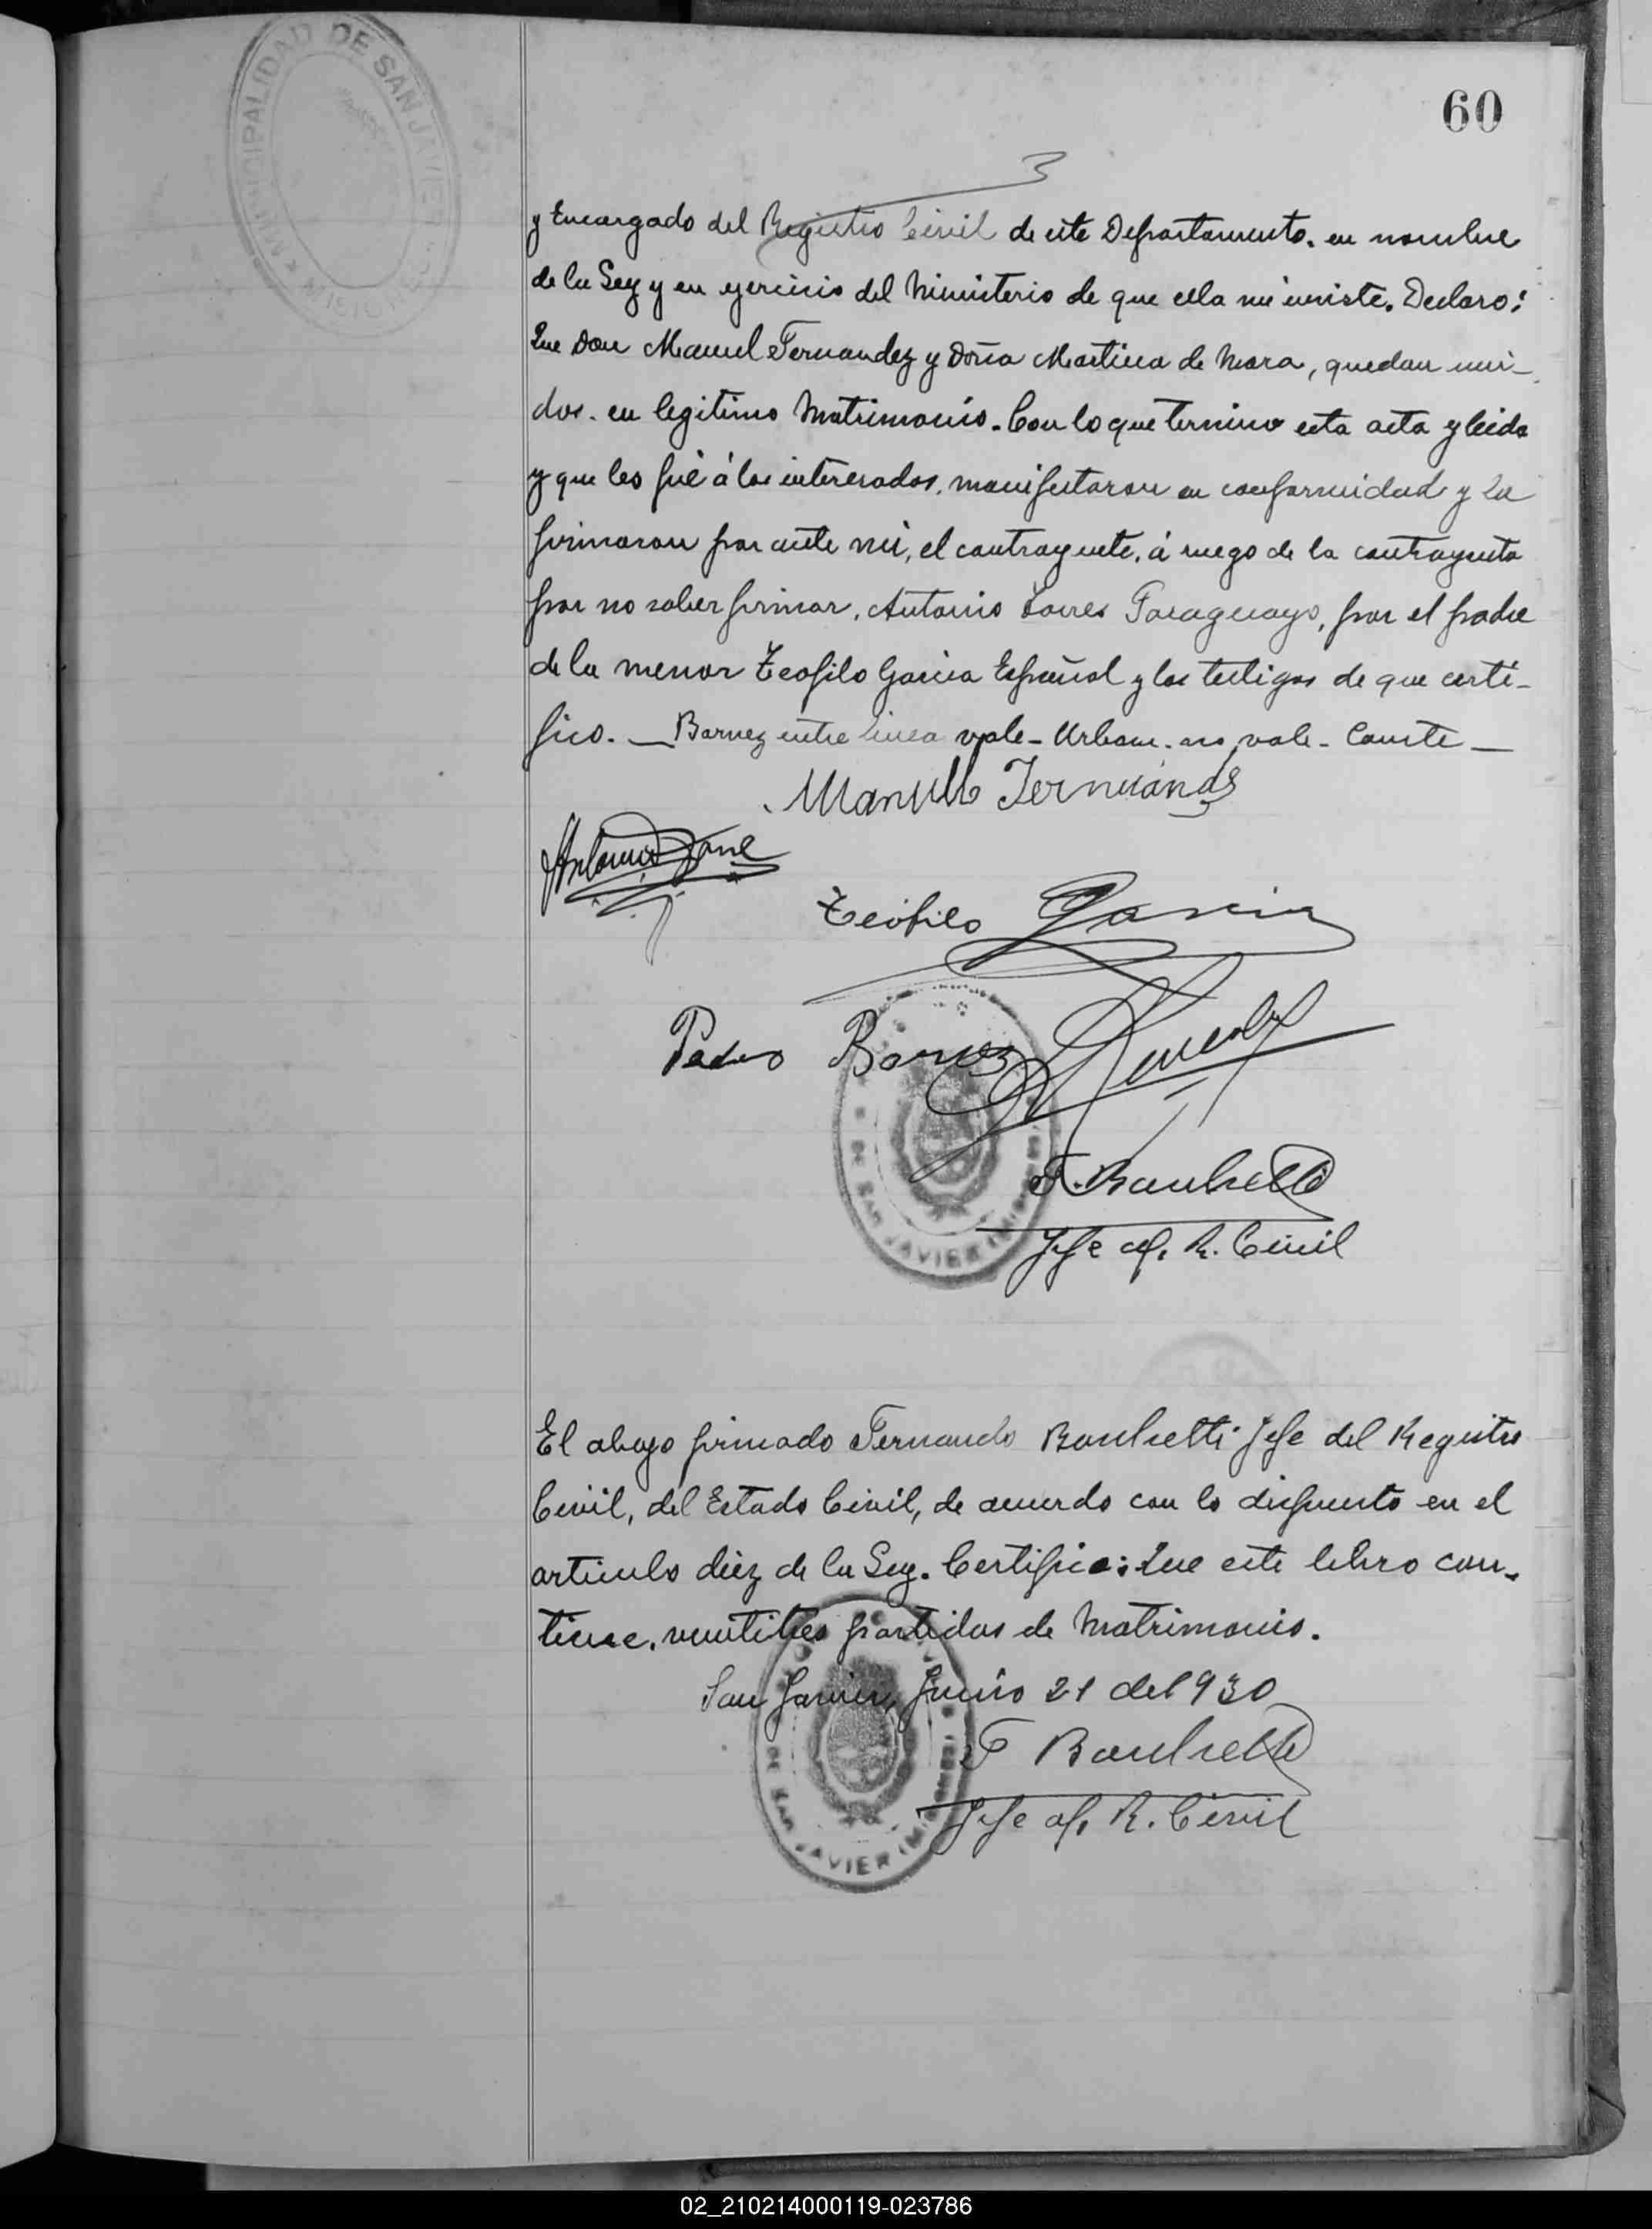 MUNICIPALIDAD DE SAN JAVIER
60
y Encargado del Registro Civil de este Departamento. en nombre
de la Ley y en ejercicio del Ministerio de que ella me inviste. Declaro:
Que Don Manuel Fernandez y Doña Martina de Mora, quedan uni-
dos. en legitimo Matrimonio. Con lo que termino esta acta y leida
y que les fué á los interesados. manifestaron su conformidad y la
firmaron por ante mi, el contrayente. á ruego de la contrayente
por no saber firmar. Antonio Paraguayo, por el padre
de la menor Teofilo Garcia Español y los testigos de que certi-
fico. — Barnez entre linea vale - no vale - Conste —
Manuel Fernandes
Antonio
Teofilo Garcia
Pedro Barnez
F. Bambretti
Jefe of. R. Civil
DE SAN JAVIER
El abajo firmado Fernando Bambretti Jefe del Registro
Civil, del Estado Civil, de acuerdo con lo dispuesto en el
articulo diez de la Ley. Certifico: Que este libro con-
tiene. veintitres partidas de Matrimonio.
San Javier, Junio 21 del 930
F Bambretti
Jefe of. R. Civil
DE SAN JAVIER (MISIONES)
02_210214000119-023786